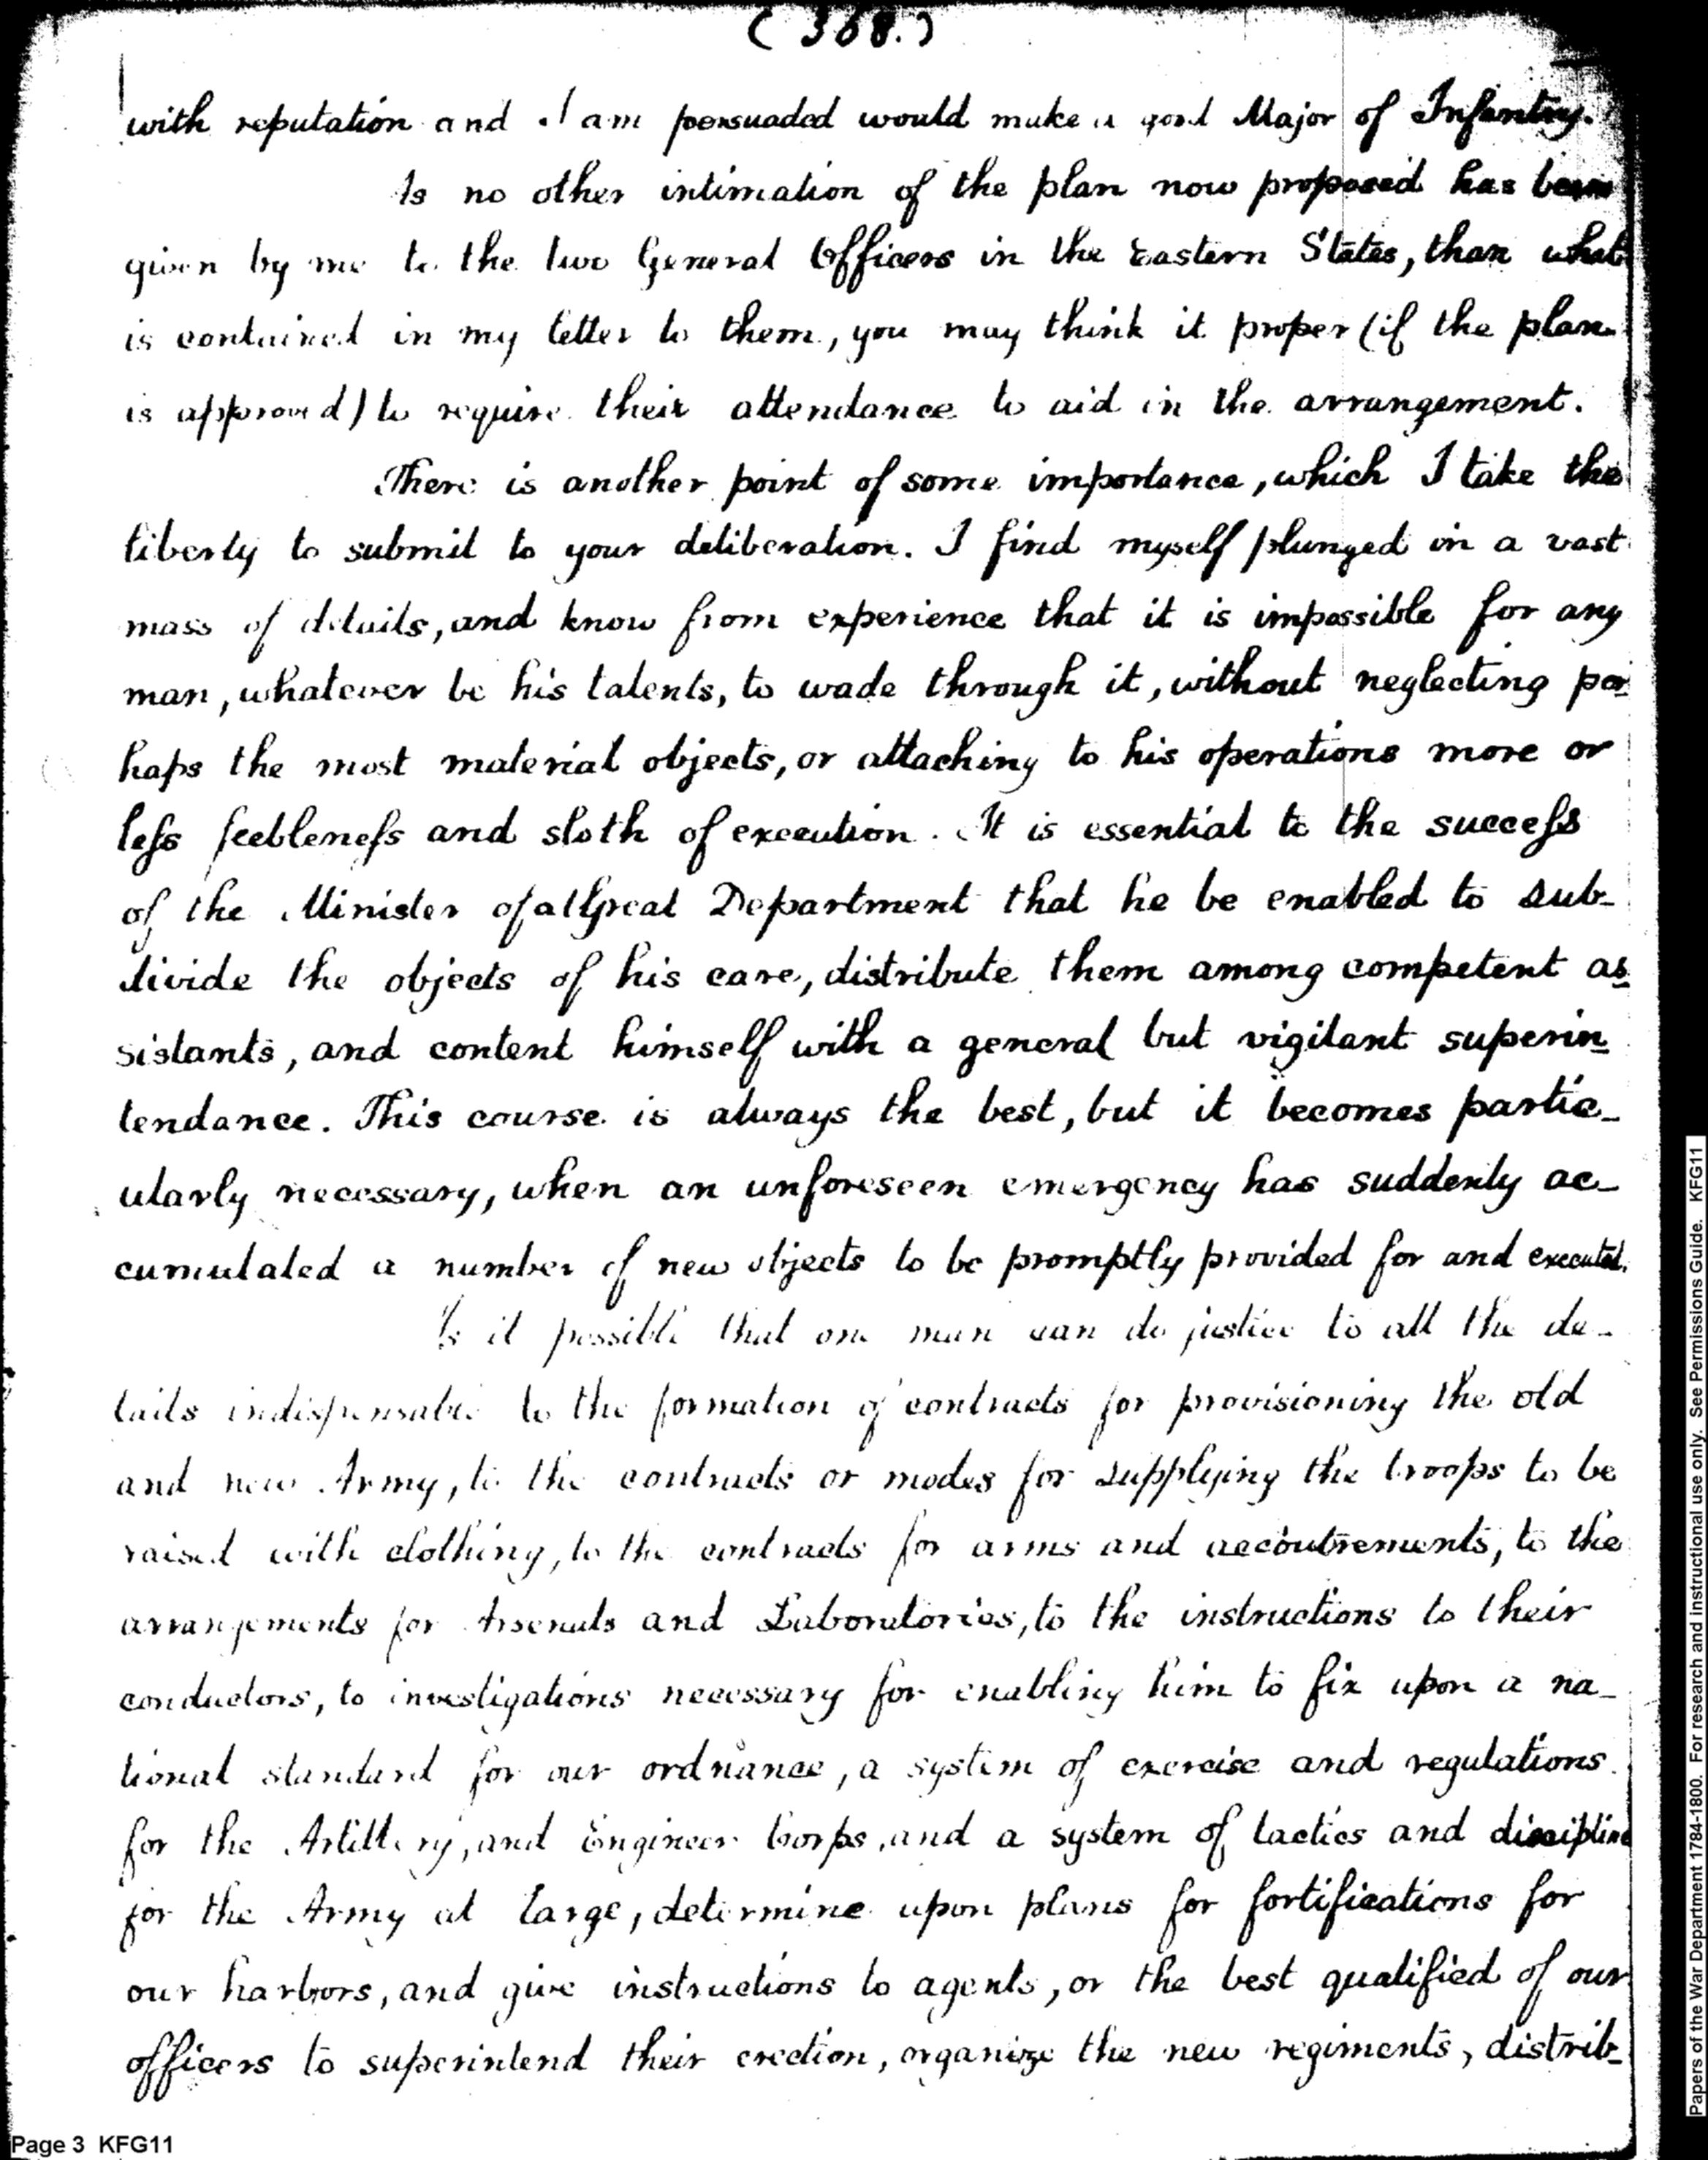 (368.)
with reputation and I am persuaded would make a good Major of Infantry.
Is no other intimation of the plan now proposed has been
given by me to the two General Officers in the Eastern States, than what
is contained in my letter to them, you may think it proper (if the plan
is approved) to require their attendance to aid in the arrangement.
There is another point of some importance, which I take the
liberty to submit to your deliberation. I find myself plunged in a vast
mass of details, and know from experience that it is impossible for any
man, whatever be his talents, to wade through it, without neglecting per
haps the most material objects, or attaching to his operations more or
less feebleness and sloth of execution. It is essential to the success
of the Minister of a Great Department that he be enabled to sub-
divide the objects of his care, distribute them among competent as
sistants, and content himself with a general but vigilant superin
tendance. This course is always the best, but it becomes partic-
ularly necessary, when an unforeseen emergency has suddenly ac-
cumulated a number of new objects to be promptly provided for and executed.
Is it possible that one man can do justice to all the de-
tails indispensable to the formation of contracts for provisioning the old
and new Army, to the contracts or modes for supplying the troops to be
raised with clothing, to the contracts for arms and accoutrements, to the
arrangements for Arsenals and Laboratories, to the instructions to their
conductors, to investigations necessary for enabling him to fix upon a na-
tional standard for our ordnance, a system of exercise and regulations
for the Artillery, and Engineer Corps, and a system of tactics and discipline
for the Army at large, determine upon plans for fortifications for
our harbors, and give instructions to agents, or the best qualified of our
officers to superintend their erection, organize the new regiments, distrib-
Page 3 KFG11
Papers of the War Department 1784-1800. For research and instructional use only. See Permissions Guide. KFG11